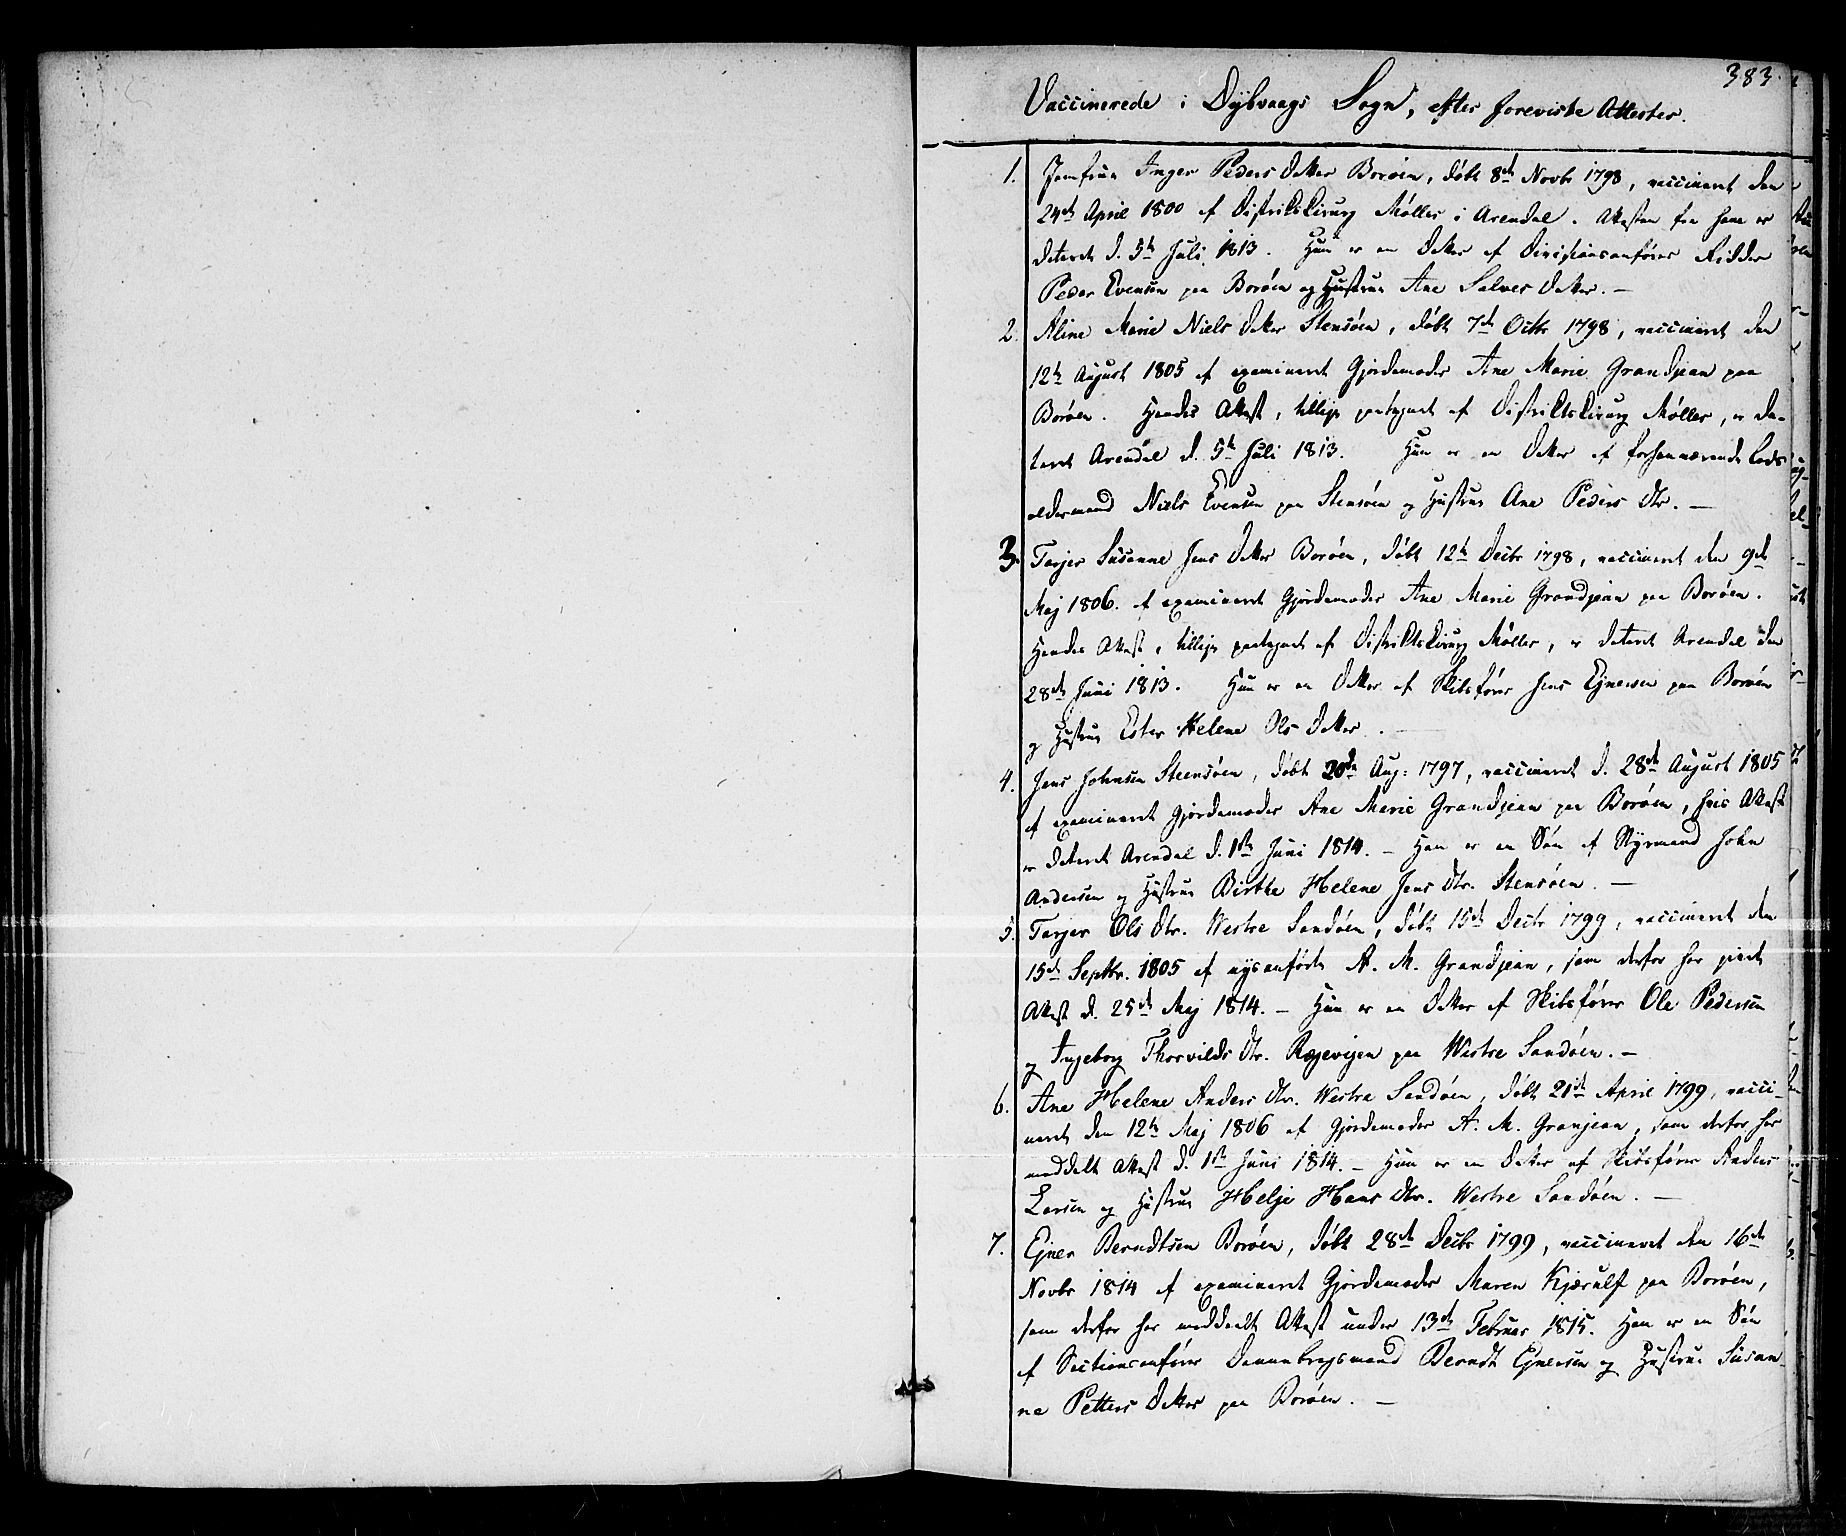 383.
Vaccinerede i Dybvaags Sogn, efter foreviste Attester.
1. Jomfrue Inger Peders Datter Borøen, døbt 8de Novbr 1798, vaccineret den
24de April 1800 af Distriktskirurg Møller i Arendal. Attesten fra ham er
dateret d. 5te Juli 1813. Hun er en Datter af Divisionsanfører Ridder
Peder Evensen paa Borøen og Hustrue Ane Salves Datter. —
2. Aline Marie Niels Datter Stensøen, døbt 7de Octbr 1798, vaccineret den
12te August 1805 af examineret Gjordemoder Ane Marie Grandjean paa
Borøen. Hendes Attest, tillige paategnet af Distriktskirurg Møller, er da-
teret Arendal d. 5te Juli 1813. Hun er en Datter af forhenværende Lods
oldermand Niels Evensen paa Stensøen og Hustrue Ane Peders Dtr. —
3. Tarjer Susanne Jens Datter Borøen, døbt 12te Decbr 1798, vaccineret den 9de
Maj 1806. af examineret Gjordemoder Ane Marie Grandjean paa Borøen.
Hendes Attest, tillige paategnet af Distriktskirurg Møller, er dateret Arendal den
28de Juni 1813. Hun er en Datter af Skibsfører Jens Ejnersen paa Borøen
og Hustrue Ester Helene Ols Datter. —
4. Jens Johnsen Steensøen, døbt 20de Aug: 1797, vaccineret d. 28de August 1805
af examineret Gjordemoder Ane Marie Grandjean paa Borøen, hvis Attest
er dateret Arendal d. 1ste Juni 1814. — Han er en Søn af Styrmand John
Andersen og Hustrue Birthe Helene Jens Dtr. Stensøen. —
5. Tarjer Ols Dtr. Westre Sandøen, døbt 15de Decbr 1799, vaccineret den
15de Septbr. 1805 af nysanførte A. M. Grandjean, som derfor har givet
Attest d. 25de Maj 1814. — Hun er en Datter af Skibsfører Ole Pedersen
og Ingeborg Thorvilds Dtr. Røgevigen paa Westre Sandøen. —
6. Ane Helene Anders Dtr. Westre Sandøen, døbt 21de April 1799, vacci-
neret den 12te Maj 1806 af Gjordemoder A. M. Granjean, som derfor har
meddelt Attest d. 1ste Juni 1814. — Hun er en Datter af Skibsfører Anders
Larsen og Hustrue Helje Hans Dtr. Westre Sandøen. —
7. Ejner Berndtsen Borøen, døbt 28de Decbr 1799, vaccineret den 16de
Novbr 1814 af examineret Gjordemoder Maren Kjærulf paa Borøen,
som derfor har meddeelt Attest under 13de Februar 1815. Han er en Søn
af Sectionsanfører Dannebrogsmand Berndt Ejnersen og Hustrue Susan-
ne Petters Datter paa Borøen. —